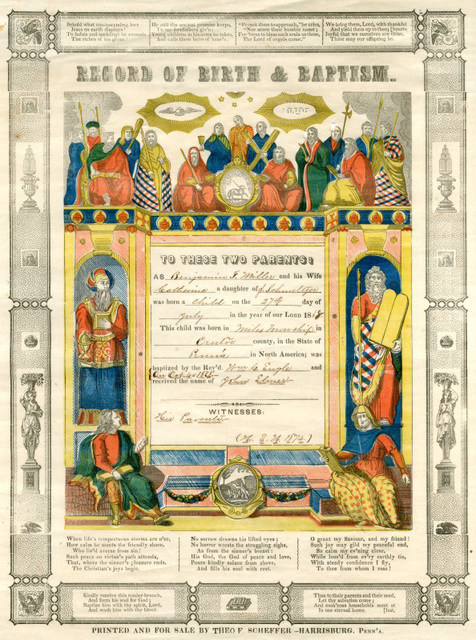 Behold what condescending love
Jesus on earth displays!
To babes and sucklings he extends
The riches of his grace.
He still the ancient promise keeps,
To our forefathers giv'n;
Young children in his arms he takes,
And calls them heirs of heav'n.
"Permit them to approach," he cries,
"Nor scorn their humble name;
For 'twas to bless such souls as these,
The Lord of angels came."
We bring them, Lord, with thankful
And yield them up to thee; [hearts
Joyful that we ourselves are thine,
Thine may our offspring be.
RECORD OF BIRTH & BAPTISM.
TO THESE TWO PARENTS:
AS Benjamin F. Miller and his Wife
Catherine a daughter of J. Schmeltzer
was born a Child on the 27th day of
July in the year of our LORD 18
This child was born in Miles Township in
Centre county, in the State of
Penna in North America; was
baptized by the Rev'd. Wm. G. Engle and
on Oct. 4
received the name of John
WITNESSES:
Parents
When life's tempestuous storms are o'er,
How calm he meets the friendly shore,
Who liv'd averse from sin!
Such peace on virtue's path attends,
That, where the sinner's pleasure ends,
The Christian's joys begin.
No sorrow drowns his lifted eyes;
No horror wrests the struggling sighs,
As from the sinner's breast:
His God, the God of peace and love,
Pours kindly solace from above,
And fills his soul with rest.
O grant my Saviour, and my friend!
Such joy may gild my peaceful end,
So calm my ev'ning close,
While loos'd from ev'ry earthly tie,
With steady confidence I fly,
To thee from whom I rose!
Kindly receive this tender branch,
And form his soul for God;
Baptize him with thy spirit, Lord,
And wash him with thy blood.
Thus to their parents and their seed,
Let thy salvation come;
And num'rous households meet at
In one eternal home. [last,
PRINTED AND FOR SALE BY THEO F. SCHEFFER -HARRISBURG. PENN'A.